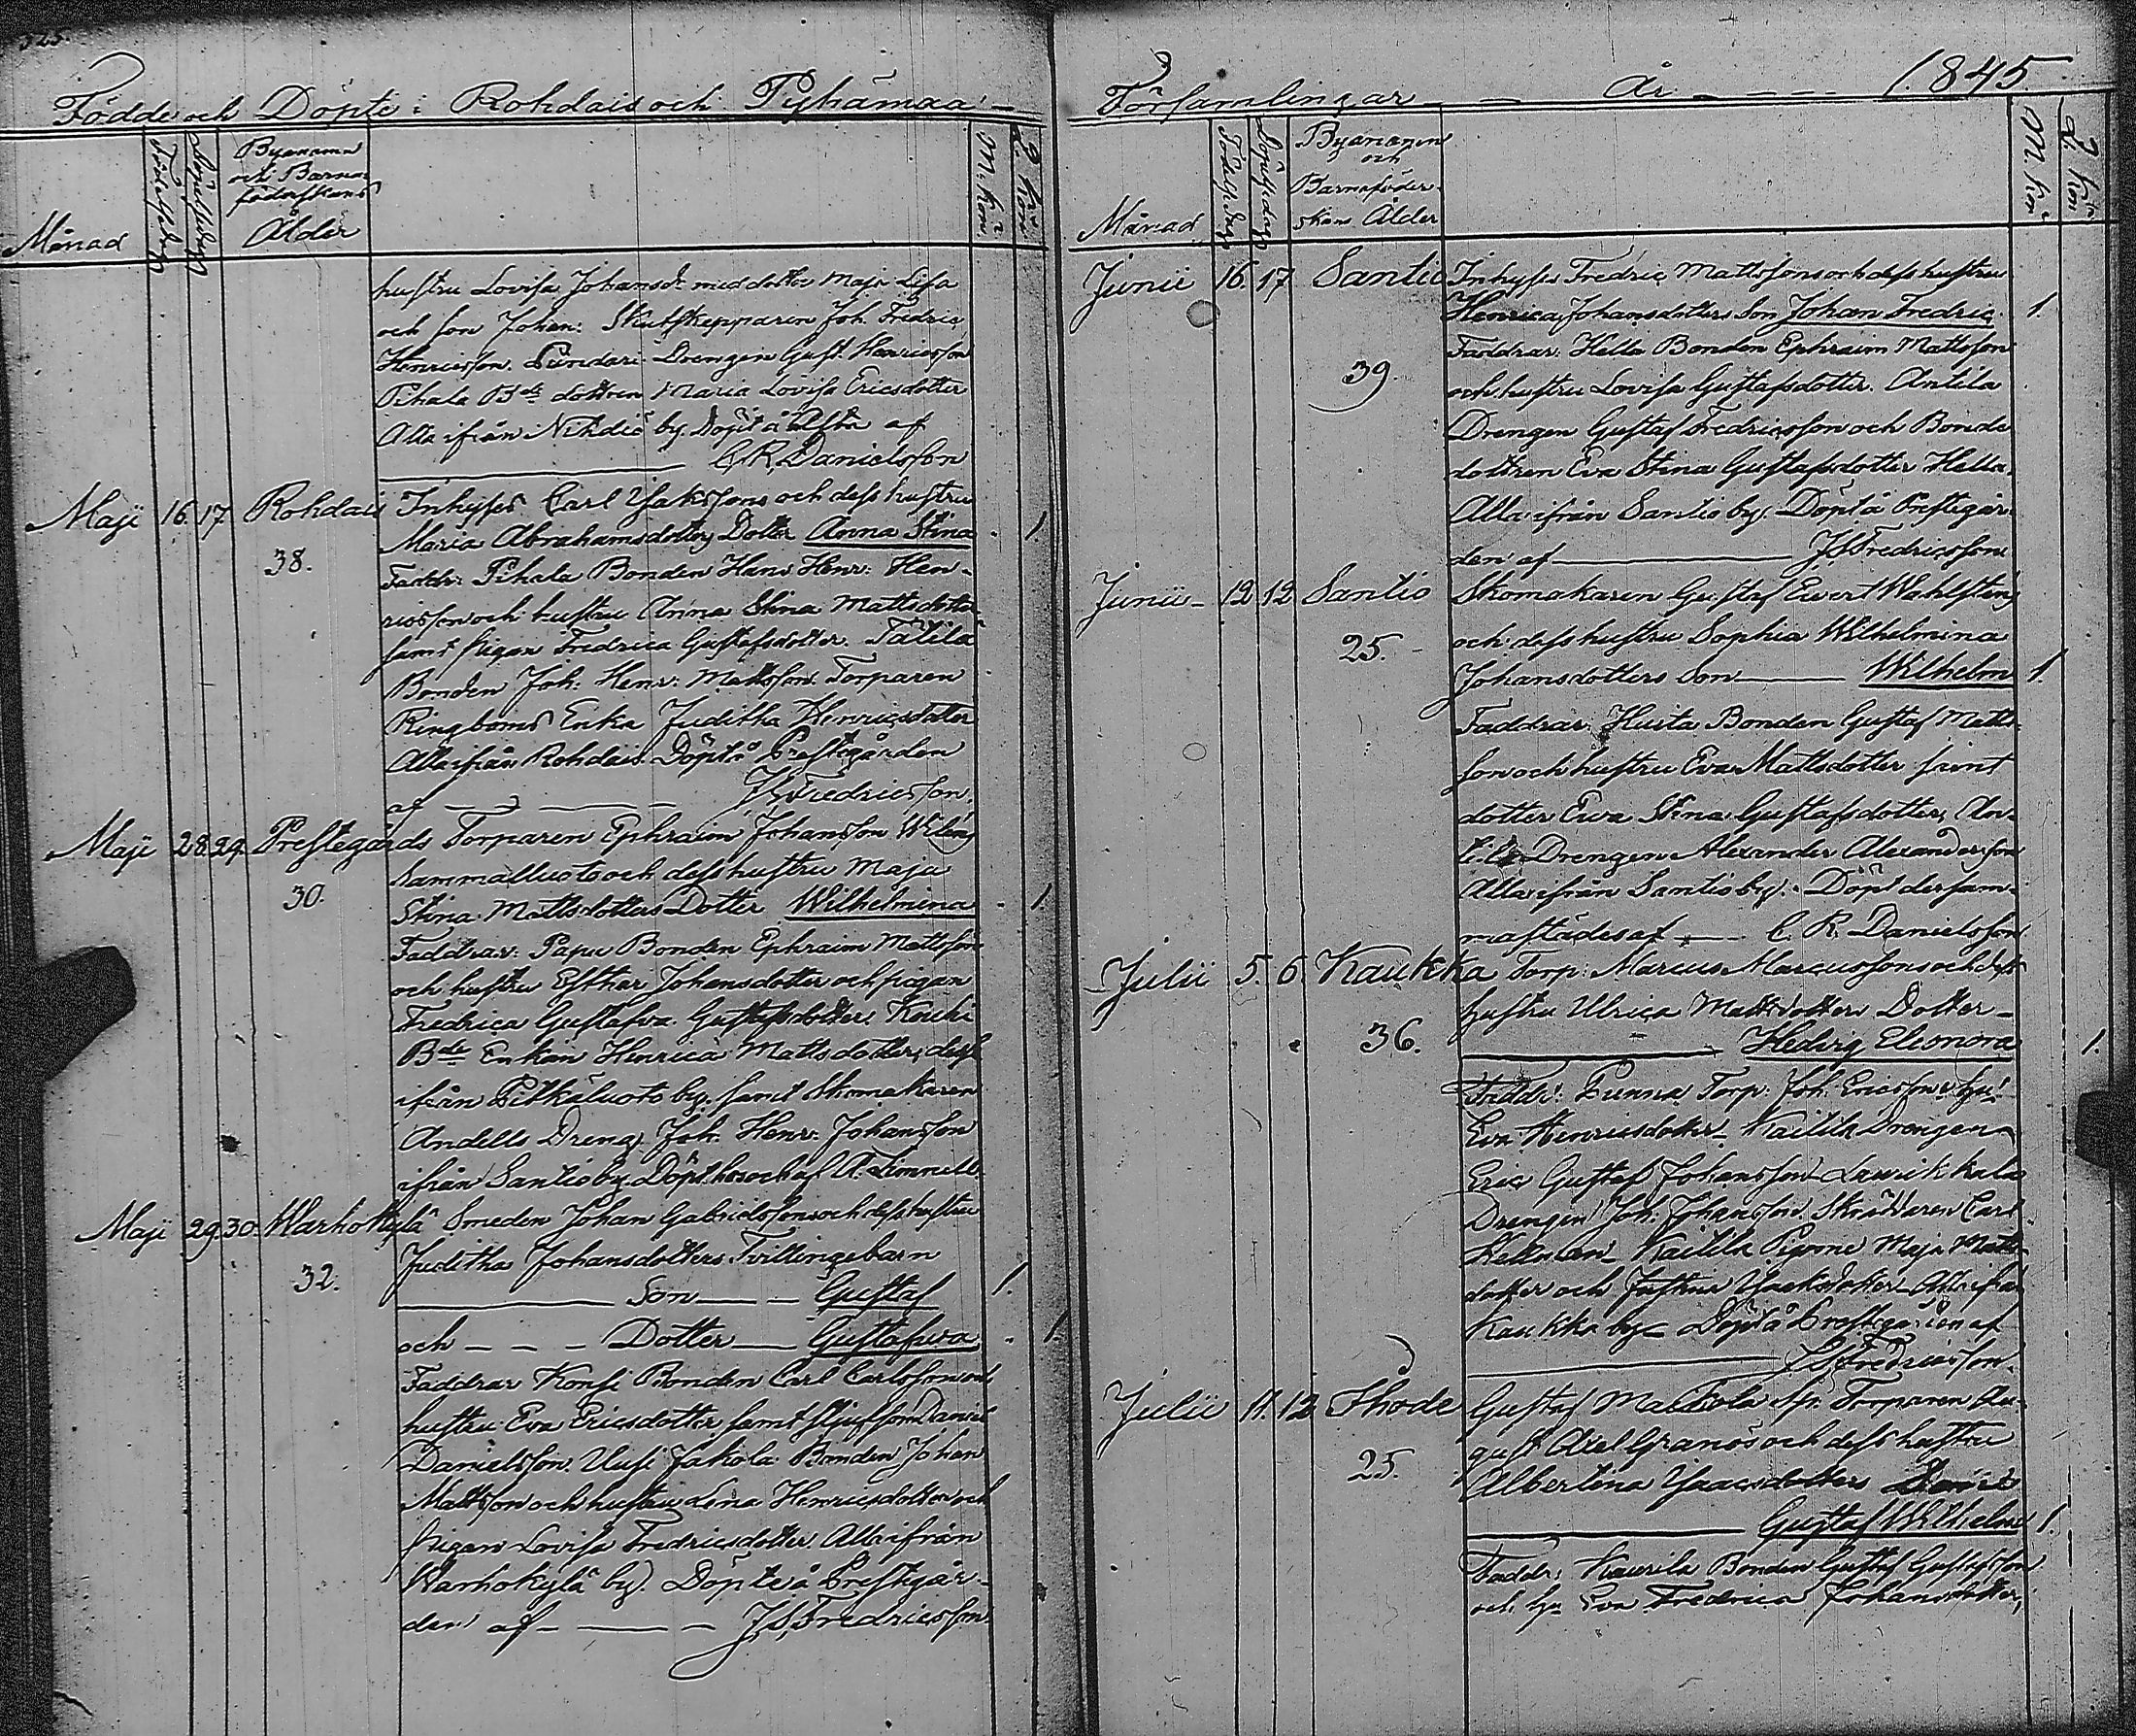 Födde och Döpte i Rohdais och Pyhämaa
Månad
Födelsedag
Döpelsedag
Byanamn
och Barna
föderskans
Ålder
M. kön
Q. kön
hustru Lovisa Johansd:r med dotter Maja Lisa
och son Johan: Skutskepparen Joh. Fredric
Henricsson. Drengen Gust. Henricsson
Pihala B:de dottren Maria Lovisa Ericsdotter
Alla ifrån Nihdiö by. Döpt å af
C. R. Danielsson
Maji 16. 17 Rohdais Inhyses Carl Isakssons och dess hustru
Maria Abrahamsdotters Dotter Anna Stina 1
38.
Faddr: Pihala Bonden Hans Henr: Hen-
ricsson och hustru Anna Stina Mattsdotter
samt pigan Fredrica Gustafsdotter. Tätilä
Bonden Joh: Henr: Mattsson. Torparen
Ringboms Enka Juditha Henricsdotter
Alla ifrån Rohdais. Döpt å Prestegården
af J S Fredricsson.
Maji 28. 29 Prestegårds Torparen Ephraim Johansson
Sammalluoto och dess hustru Maja
30.
Stina Mattsdotters Dotter Wilhelmina 1
Faddrar: Papu Bonden Ephraim Mattsson
och hustru Esther Johansdotter och pigan
Fredrica Gustafva Gustafsdotter. Kauhi
B:de Enkan Henrica Mattsdotter,
ifrån Pitkäluoto by. samt Skomakaren
Andells Dreng Joh. Henr. Johansson
ifrån Santio by. Döpt hos och af A. Limnell.
Maji 29. 30. Warhokylä Smeden Johan Gabrielssons och dess hustru
Juditha Johansdotters Tvillingebarn
32.
Son Gustaf 1.
och Dotter Gustafva 1.
Faddrar Konsi Bonden Carl Carlsson och
hustru Eva Ericsdotter samt styfson Daniel
Danielsson. Uusi Jakola Bonden Johan
Mattsson och hustru Lena Henricsdotter och
pigan Lovisa Fredricsdotter. Alla ifrån
Warhokylä by. Döpte å Prestegår-
den af J S Fredricsson
Församlingar År 1845
Månad
Födelsedag
Döpelsedag
Byanamn
och
Barnaföder-
skans Ålder
M. kön
Q. kön
Junii 16. 17 Santio Inhyses Fredric Mattssons och dess hustru
Henrica Johansdotters Son Johan Fredric 1.
Faddrar: Hella Bonden Ephraim Mattsson
39.
och hustru Lovisa Gustafsdotter. Antila
Drengen Gustaf Fredricsson och Bonde
dottren Eva Stina Gustafsdotter Hella.
Alla ifrån Santio by. Döpt å Prestegår-
den af J S Fredricsson
Junii 12 12 Santio Skomakaren Gustaf Evert Wahlsténs
och dess hustru Sophia Wilhelmina
25.
Johansdotters Son Wilhelm 1.
Faddrar: Husta Bonden Gustaf Matts-
son och hustru Eva Mattsdotter samt
dotter Eva Stina Gustafsdotter, An-
tila Drengen Alexander Alexandersson
Alla ifrån Santio by. Döpt dersam-
mastädes af C. R. Danielsson
Julii 5. 6 Kaukka Torp: Marcus Marcussons och dess
hustru Ulrica Mattsdotters Dotter
36.
Hedvig Eleonora 1.
Faddr: Punna Torp: Joh. Ericsson o. hu:
Eva Henricsdotter. Kaitila Drengen
Eric Gustaf Johansson
Drengen Joh. Johansson Skräddaren Carl
Hellman Kaitila Pigorne Maja Matts-
dotter och Justina Isaksdotter Alla ifrån
Kaukka by. Döpt å Prestegården af
J S Fredricsson.
Julii 11. 12 Ihode Gustaf Torparen Au-
gust Axel Granös och dess hustru
25.
Albertina Isaacsdotters
Gustaf Wilhelm 1.
Faddr: Kaurila Bonden Gustaf Gustafsson
och hu. Eva Fredrica Johansdotter,